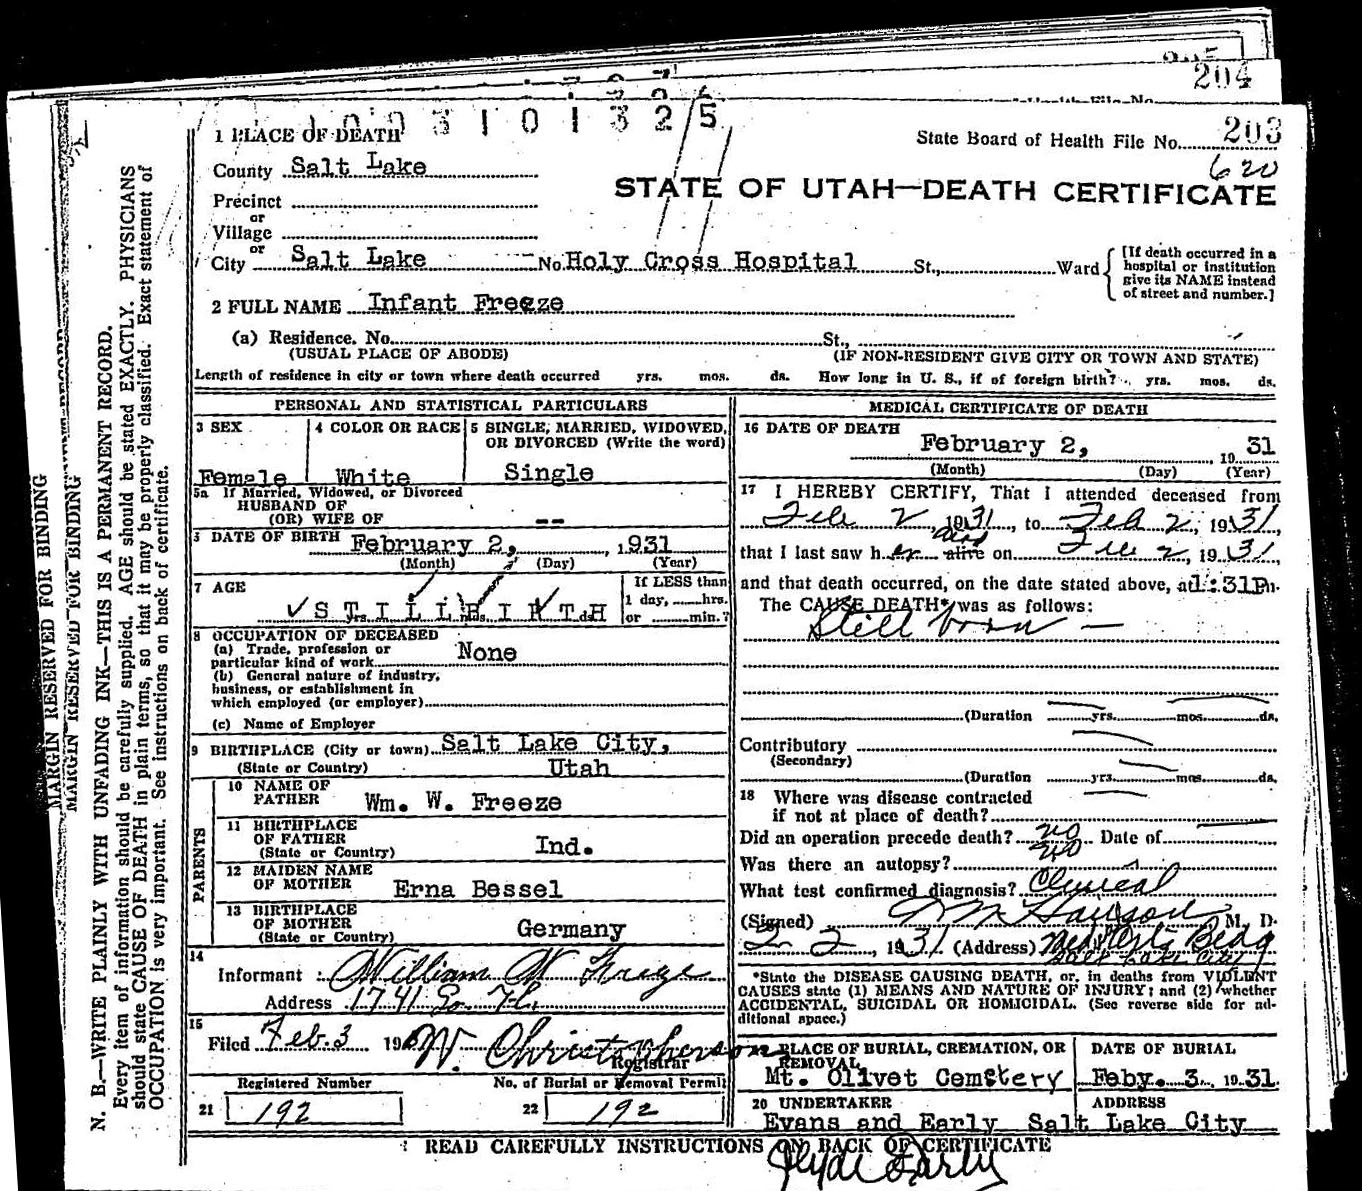 204
1 PLACE OF DEATH
State Board of Health File No. 203
620
County Salt Lake
STATE OF UTAH—DEATH CERTIFICATE
Precinct
or
Village
or
City Salt Lake No. Holy Cross Hospital St., Ward
[If death occurred in a hospital or institution give its NAME instead of street and number.]
2 FULL NAME Infant Freeze
(a) Residence. No. St.,
(USUAL PLACE OF ABODE) (IF NON-RESIDENT GIVE CITY OR TOWN AND STATE)
Length of residence in city or town where death occurred yrs. mos. ds. How long in U. S., if of foreign birth? yrs. mos. ds.
PERSONAL AND STATISTICAL PARTICULARS
3 SEX Female
4 COLOR OR RACE White
5 SINGLE, MARRIED, WIDOWED, OR DIVORCED (Write the word) Single
5a If Married, Widowed, or Divorced
HUSBAND OF
(OR) WIFE OF --
DATE OF BIRTH February 2, 1931
(Month) (Day) (Year)
7 AGE STILLBIRTH
If LESS than
1 day, hrs.
or min.?
8 OCCUPATION OF DECEASED
(a) Trade, profession or
particular kind of work None
(b) General nature of industry,
business, or establishment in
which employed (or employer)
(c) Name of Employer
9 BIRTHPLACE (City or town) Salt Lake City,
(State or Country) Utah
PARENTS
10 NAME OF
FATHER Wm. W. Freeze
11 BIRTHPLACE
OF FATHER
(State or Country) Ind.
12 MAIDEN NAME
OF MOTHER Erna Bessel
13 BIRTHPLACE
OF MOTHER
(State or Country) Germany
14
Informant William W Freeze
Address 1741 So. 7 E.
15
Filed Feb. 3 19 W. Christopherson
Registrar
Registered Number No. of Burial or Removal Permit
21 192 22 192
MEDICAL CERTIFICATE OF DEATH
16 DATE OF DEATH
February 2, 19 31
(Month) (Day) (Year)
17 I HEREBY CERTIFY, That I attended deceased from
Feb 2, 1931, to Feb 2, 1931,
dead
that I last saw her alive on Feb 2, 1931,
and that death occurred, on the date stated above, at 1:31P m.
The CAUSE DEATH* was as follows:
Still born —
(Duration yrs. mos. ds.
Contributory
(Secondary)
(Duration yrs. mos. ds.
18 Where was disease contracted
if not at place of death?
Did an operation precede death? no Date of
Was there an autopsy? no
What test confirmed diagnosis? Clinical
(Signed) M. D.
2 2, 1931 (Address) Med Arts Bldg
Salt Lake City
*State the DISEASE CAUSING DEATH, or, in deaths from VIOLENT
CAUSES state (1) MEANS AND NATURE OF INJURY; and (2) whether
ACCIDENTAL, SUICIDAL OR HOMICIDAL. (See reverse side for ad-
ditional space.)
PLACE OF BURIAL, CREMATION, OR
REMOVAL
Mt. Olivet Cemetery
DATE OF BURIAL
Feby. 3, 19 31.
20 UNDERTAKER ADDRESS
Evans and Early Salt Lake City
READ CAREFULLY INSTRUCTIONS ON BACK OF CERTIFICATE
Clyde Early
MARGIN RESERVED FOR BINDING
MARGIN RESERVED FOR BINDING
N. B.—WRITE PLAINLY WITH UNFADING INK—THIS IS A PERMANENT RECORD.
Every item of information should be carefully supplied. AGE should be stated EXACTLY. PHYSICIANS
should state CAUSE OF DEATH in plain terms, so that it may be properly classified. Exact statement of
OCCUPATION is very important. See instructions on back of certificate.